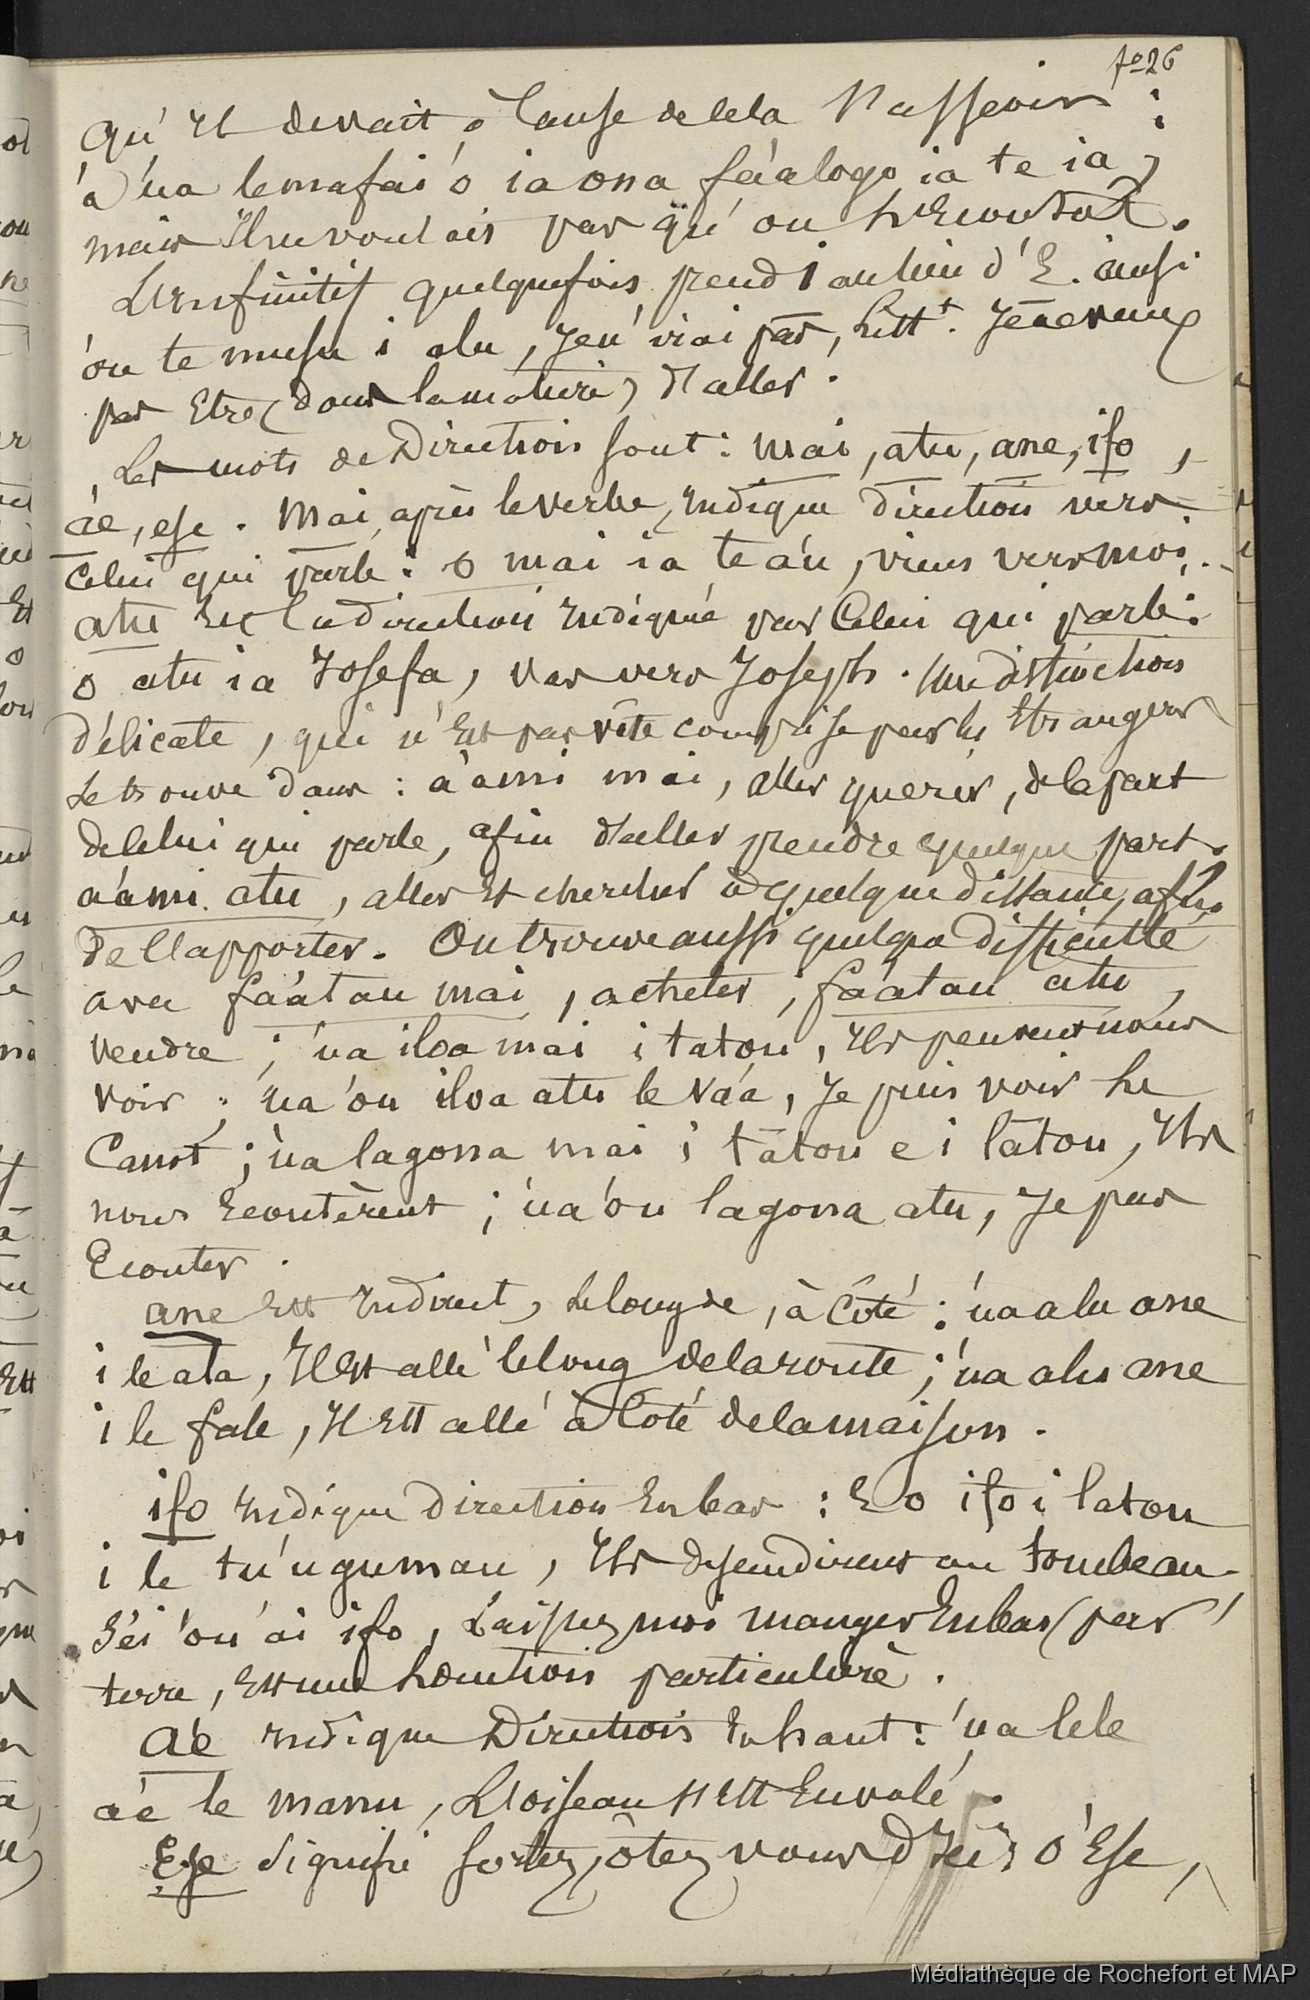 fo 26
qu'Il devait à Cause de cela s'asseoir ;
'a 'ua le mafai 'o ia ona fáalogo ia te ia,
mais Il ne voulais pas qu'on l'Ecoutat.
L'Infinitif quelquefois prend i au lieu d'E. ainsi
'ou te musu i alu, Je n'irai pas, Littt. Je ne veux
pas Etre (dans la matière) d'aller.
Les mots de Direction sont : mai, atu, ane, ifo,
áe, ese. Mai, après le verbe, Indique direction vers
Celui qui parle : o mai ia te áu, viens vers moi.
atu Est la direction Indiquée par Celui qui parle :
o atu ia Iosefa, vas vers Joseph. Une distinction
délicate, qui n'Est pas vite comprise par les Etrangers
se trouve dans : áami mai, aller querir, de la part
de Celui qui parle, afin d'aller prendre quelque part.
áami atu, aller Et chercher à quelque distance, afin
de l'apporter. On trouve aussi quelque difficulté
avec fáatau mai, acheter, fáatau atu,
vendre ; 'ua iloa mai i tatou, Ils peuvent nous
voir ; 'ua 'ou iloa atu le váa, Je puis voir le
Canot ; 'ua lagona mai i tatou e i latou, Ils
nous Ecoutèrent ; 'ua 'ou lagona atu, Je puis
Ecouter.
ane Est Indirect, le long de, à Côté : 'ua alu ane
i le ala, Il Est allé le long de la route ; 'ua alu ane
i le fale, Il Est allé à Côté de la maison.
ifo Indique direction En bas : E o ifo i latou
i le tu'ugumau, Ils descendirent au tombeau.
Séi 'ou ái ifo, Laissez moi manger En bas (par
terre, Est une locution particulière.
Áe Indique Direction En haut : 'ua lele
áe le manu, L'oiseau s'Est Envolé.
Ese signifie sortez, ôtez vous d'Ici ; o Ese,
Médiathèque de Rochefort et MAP